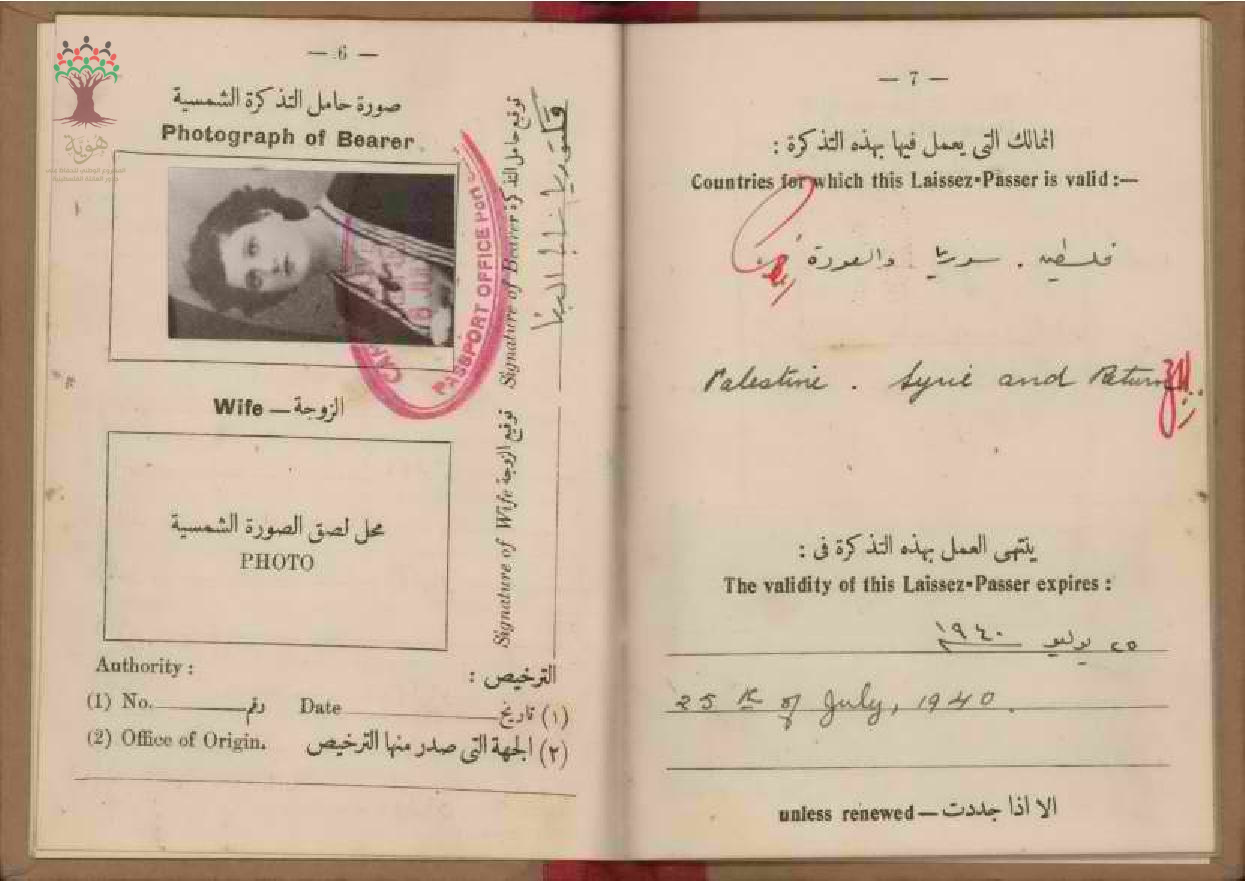 — 6 —
هوية
صورة حامل التذكرة الشمسية
Photograph of Bearer
PASSPORT OFFICE
توقيع حامل التذكرة
Signature of Bearer
Wife — الزوجة
محل لصق الصورة الشمسية
PHOTO
توقيع الزوجة
Signature of Wife
Authority : الترخيص :
(1) No. رقم Date تاريخ (١)
(2) Office of Origin. الجهة التى صدر منها الترخيص (٢)
— 7 —
الممالك التى يعمل فيها بهذه التذكرة :
Countries for which this Laissez-Passer is valid :—
فلسطين . سوريا والعودة
Palestine . Syrie and Return
ينتهى العمل بهذه التذكرة فى :
The validity of this Laissez-Passer expires :
٢٥ يوليو ١٩٤٠
25 th of July, 1940.
unless renewed — الا اذا جددت